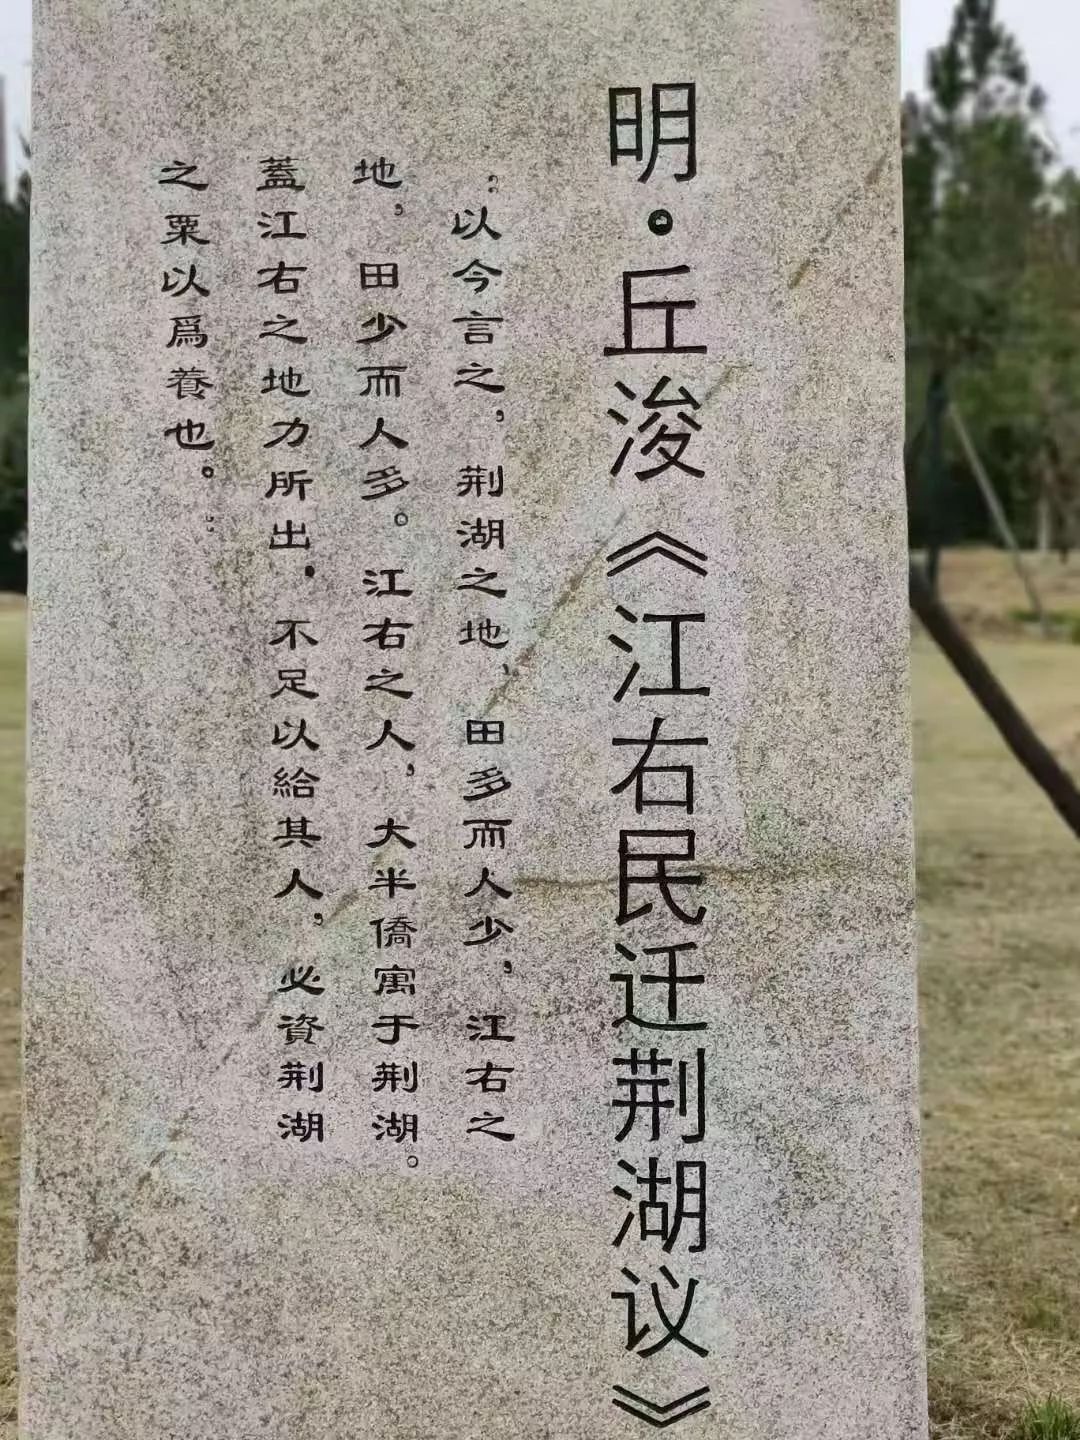 明·丘浚《江右民迁荆湖议》
“以今言之，荆湖之地、田多而人少，江右之
地，田少而人多。江右之人，大半僑寓于荆湖。
蓋江右之地力所出，不足以給其人，必資荆湖
之粟以爲養也。”